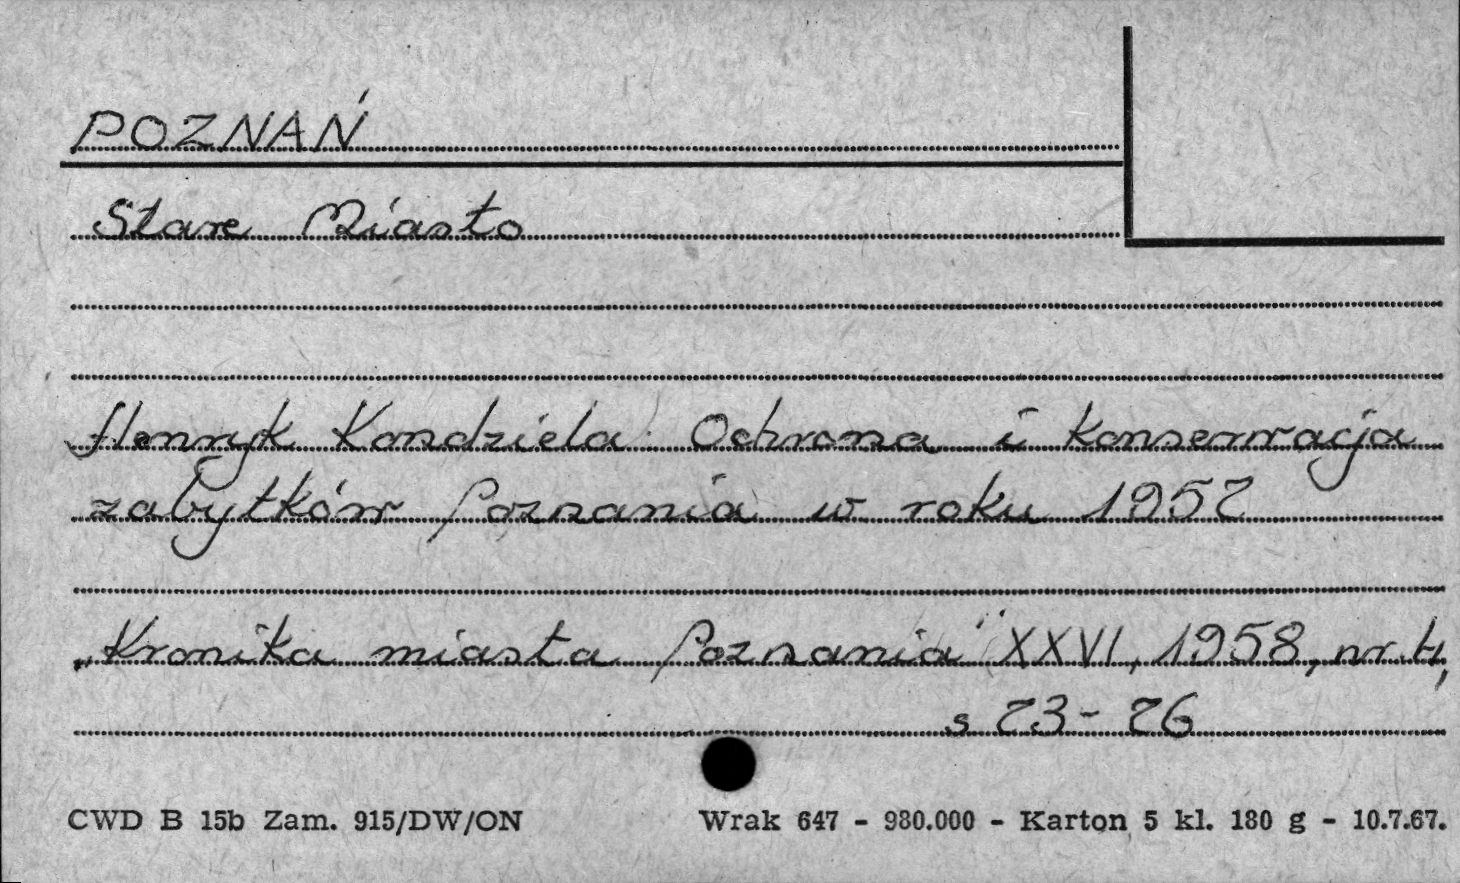 POZNAŃ
Stare Miasto
Henryk Kondziela Ochrona i konserwacja
zabytków Poznania w roku 1957
„Kronika miasta Poznania" XXVI, 1958, nr 4,
s 73 - 76
CWD B 15b Zam. 915/DW/ON Wrak 647 - 980.000 - Karton 5 kl. 180 g - 10.7.67.